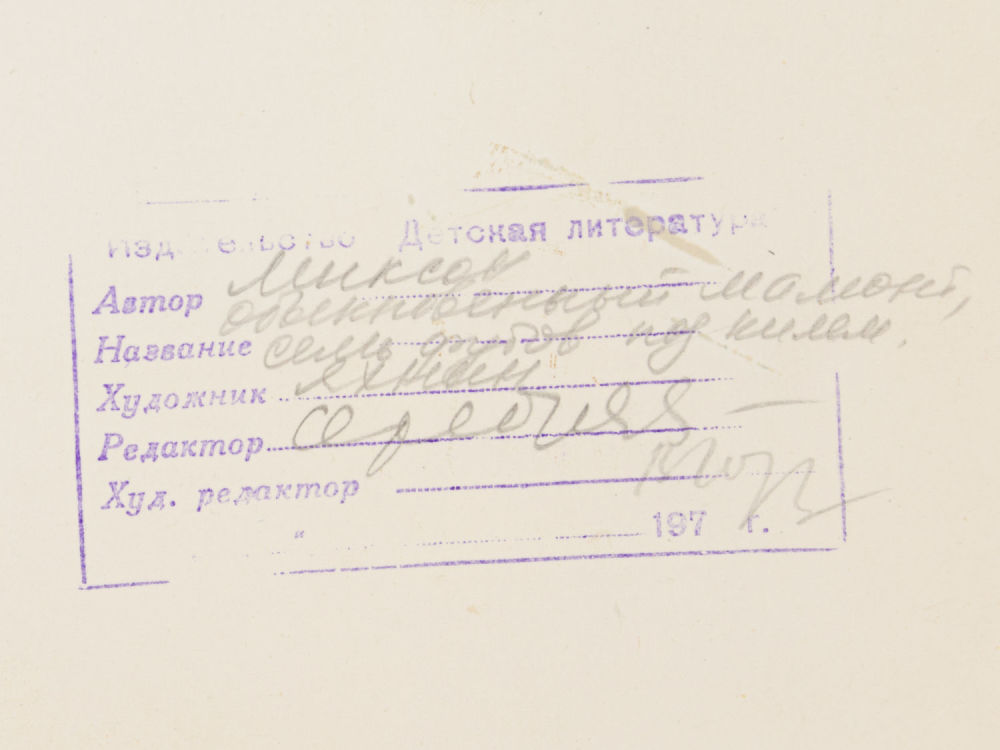 Издательство Детская литература
Автор Миксон
обыкновенный мамонт,
Название семь футов под килем.
Художник Яхнин
Редактор
Худ. редактор
" 197 г.